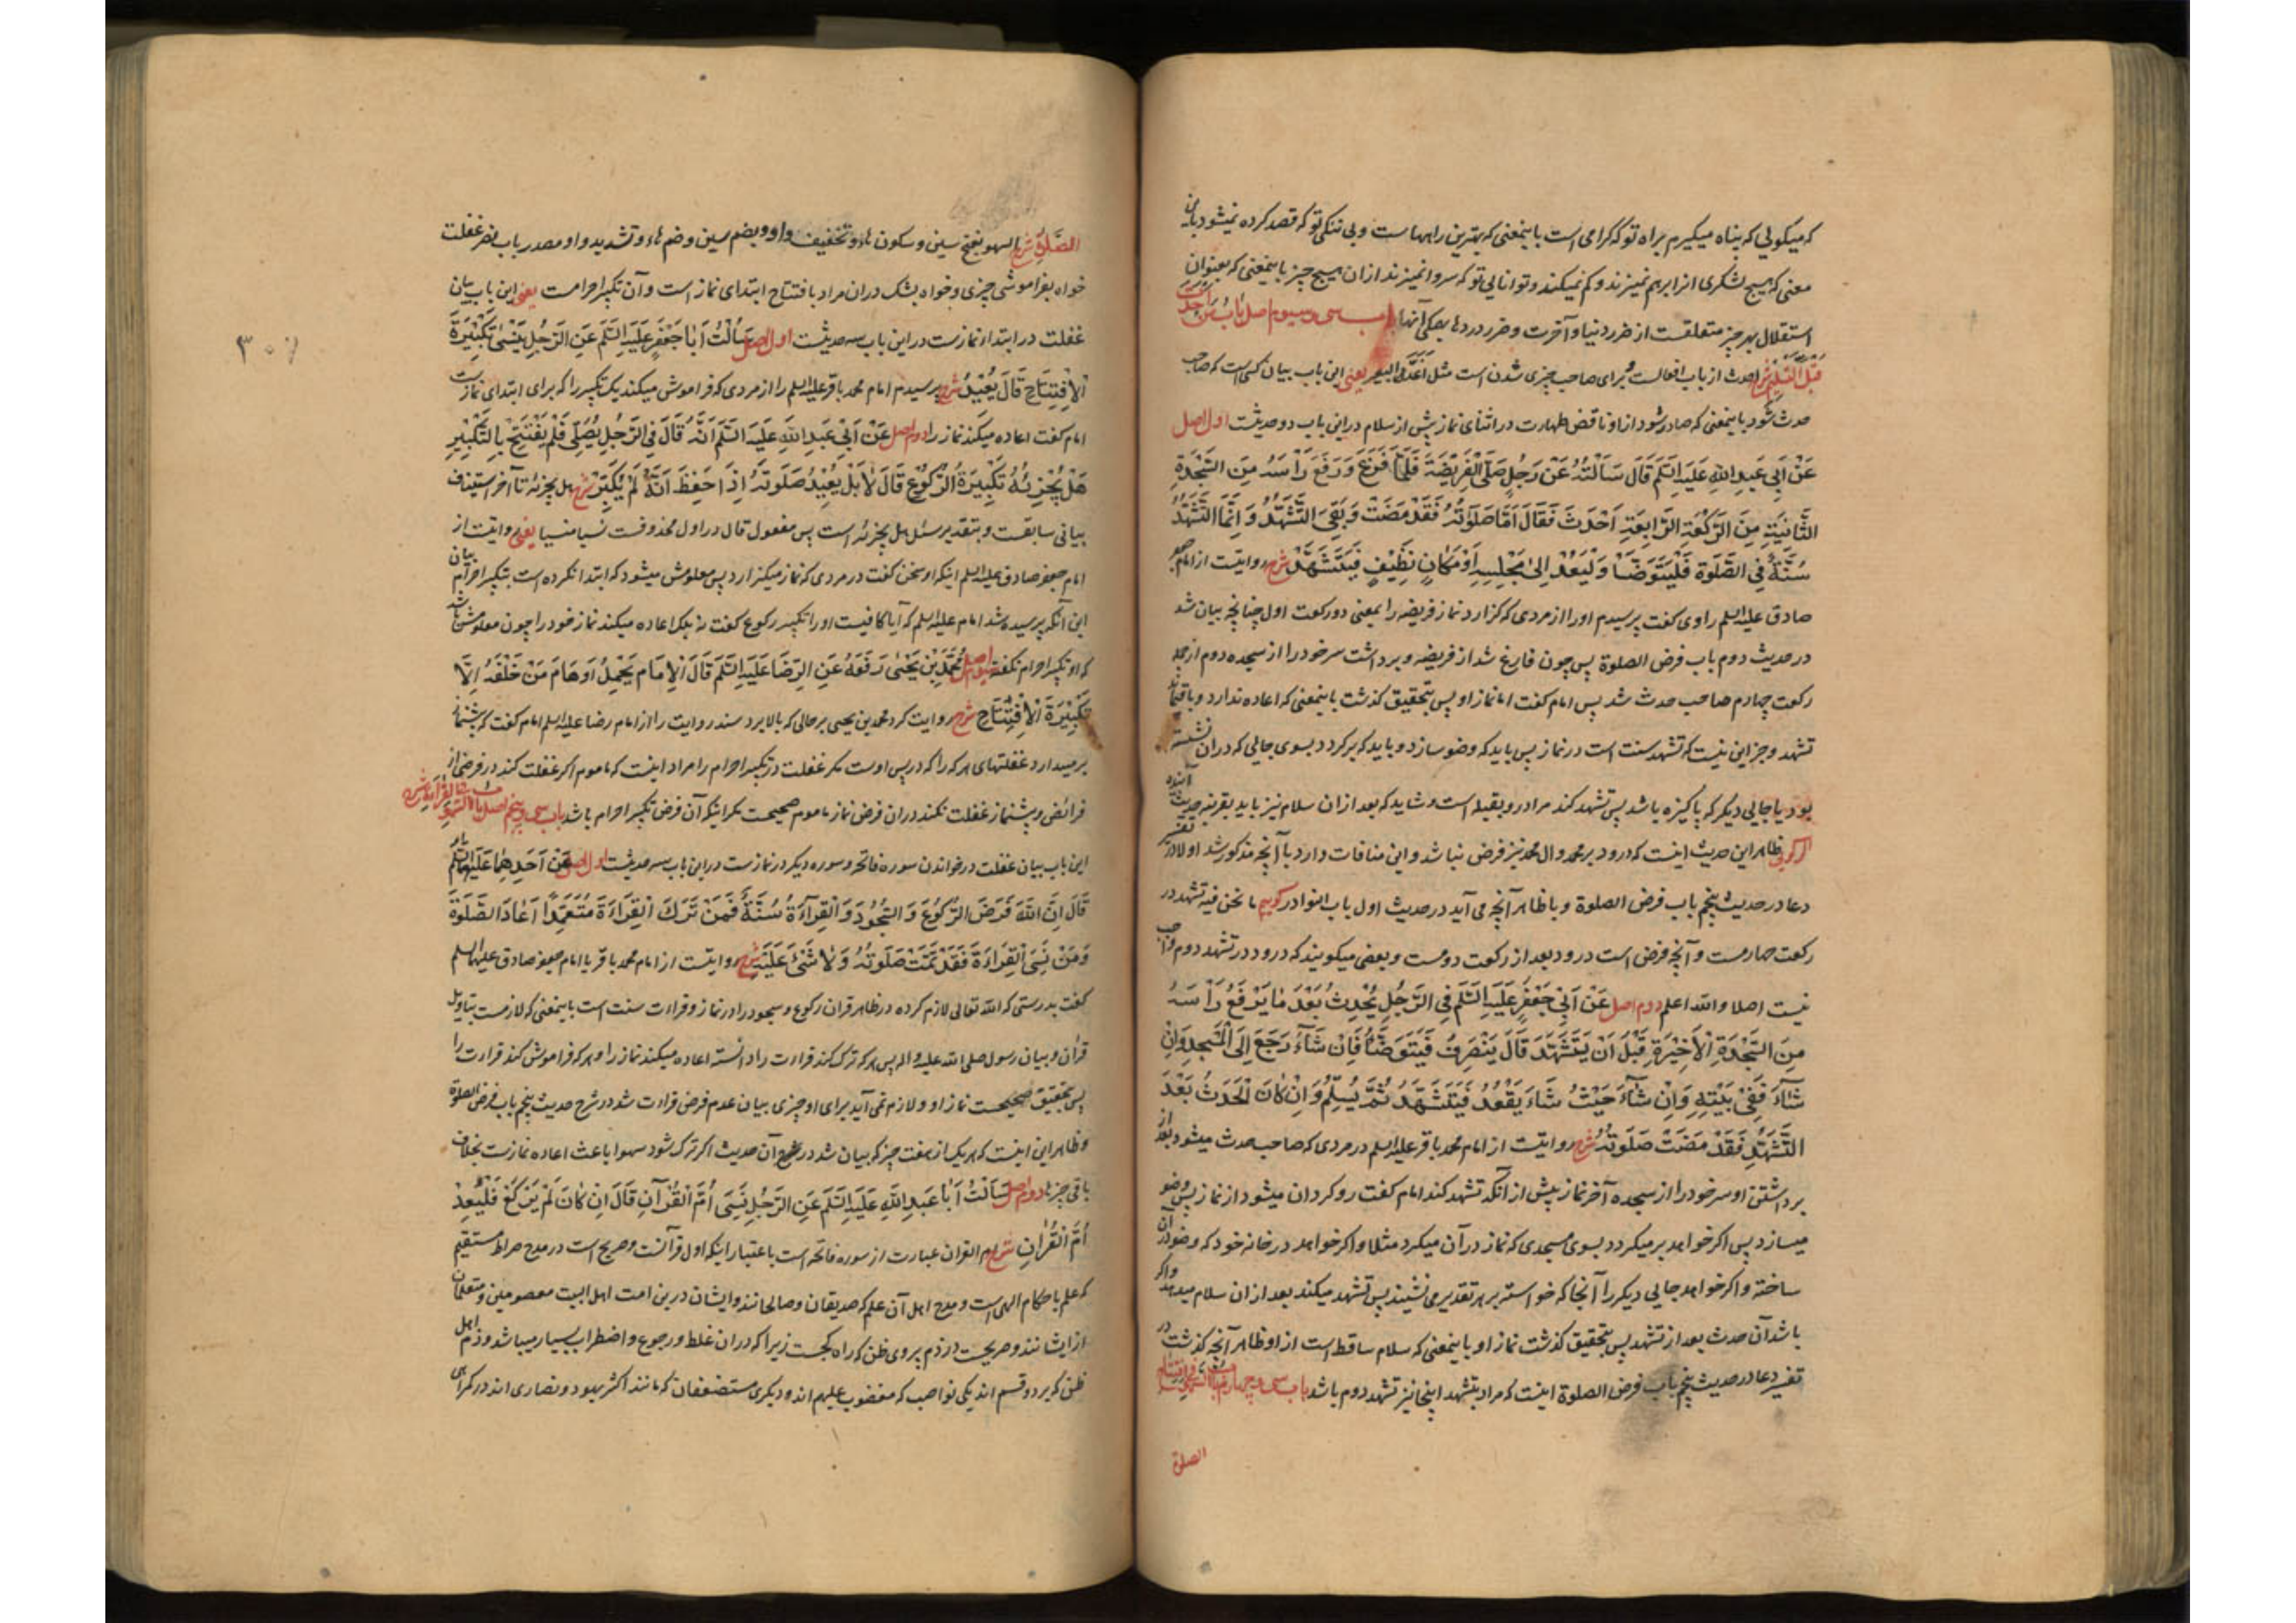 که میکویی که پناه میکیرم براه تو که کرامی است باینمعنی که بهترین راههاست و بی ننکی تو که قصد کرده نمیشود باین
معنی که هیچ لشکری انرا برهم نمیزند و کم نمیکند و توانایی تو که سروا نمیزند از ان هیچ چیز باینمعنی که بعنوان
استقلال بهر چیز متعلقست از ضرر دنیا و آخرت و ضرر دردها بهمکی آنها باب سی و سیوم اصل باب من احدث
قبل التسلیم شرح احدث از باب افعالست برای صاحب چیزی شدن است مثل اغد البعیر یعنی این باب بیان کسی است که صاحب
حدث شود باینمعنی که صادر شود از او ناقض طهارت در اثنای نماز پیش از سلام در این باب دو حدیثست اول اصل
عَنْ اَبِي عَبدِ اللهِ عَلَيهِ السَّلَم قَالَ سَاَلتُهُ عَنْ رَجُلٍ صَلَّى الْفَرِيْضَةَ فَلَمَّا فَرَغَ وَرَفَعَ رَأسَهُ مِنَ السَّجْدَةِ
الثَّانِيَةِ مِنَ الرَّكْعَةِ الرَّابِعَةِ اَحْدَثَ فَقَالَ اَمَّا صَلَوتُهُ فَقَدْ مَضَتْ وَبَقِيَ التَّشَهُّدُ وَاِنَّمَا التَّشَهُّدُ
سُنَّةٌ فِي الصَّلَوة فَلْيَتَوَضَّا وَلْيَعُدْ اِلىٰ مَجْلِسِهِ اَوْ مَكَانٍ نَظِيْفٍ فَيَتَشَهَّدْ شرح روایتست از امام جعفر
صادق علیه السلم راوی کفت پرسیدم او را از مردی که کزارد نماز فریضه را بمعنی دو رکعت اول چنانچه بیان شد
در حدیث دوم باب فرض الصلوة پس چون فارغ شد از فریضه و برداشت سر خود را از سجده دوم از جمله
رکعت چهارم صاحب حدث شد پس امام کفت اما نماز او پس بتحقیق کذشت باینمعنی که اعاده ندارد و باقیماند
تشهد و جز این نیست که تشهد سنت است در نماز پس باید که وضو سازد و باید که برکردد بسوی جایی که دران نشسته
بود یا جایی دیکر که پاکیزه باشد پس تشهد کند مراد رو بقبله است و شاید که بعد از ان سلام نیز باید بقرینه حدیث آینده
اکر کویی ظاهر این حدیث اینست که درود بر محمد و ال محمد نیز فرض نباشد و این منافات دارد با آنچه مذکور شد اولا در تفسیر
دعا در حدیث پنجم باب فرض الصلوة و با ظاهر آنچه می آید در حدیث اول باب النوادر کوییم ما نحن فیه تشهد در
رکعت چهارمست و آنچه فرض است درود بعد از رکعت دومست و بعضی میکویند که درود در تشهد دوم واجب
نیست اصلا والله اعلم دوم اصل عَنْ اَبِيْ جَعْفَرٍ عَلَيهِ السَّلَم فِي الرَّجُلِ يُحْدِثُ بَعْدَ مَا يَرْفَعُ رَأْسَهُ
مِنَ السَّجْدَةِ الْاَخِيْرَةِ قَبْلَ اَنْ يَتَشَهَّدَ قَالَ يَنْصَرِفُ فَيَتَوَضَّأُ فَاِنْ شَآءَ رَجَعَ اِلَى الْمَسْجِدِ وَاِنْ
شَآءَ فَفِيْ بَيْتِهِ وَاِنْ شَآءَ حَيْثُ شَآءَ يَقْعُدُ فَيَتَشَهَّدُ ثُمَّ يُسَلِّمُ وَاِنْ كَانَ الْحَدَثُ بَعْدَ
التَّشَهُّدِ فَقَدْ مَضَتْ صَلَوتُهُ شرح روایتست از امام محمد باقر علیه السلم در مردی که صاحب حدث میشود بعد از
برداشتن او سر خود را از سجده آخر نماز پیش از آنکه تشهد کند امام کفت روکردان میشود از نماز پس وضو
میسازد پس اکر خواهد برمیکردد بسوی مسجدی که نماز در آن میکرد مثلا و اکر خواهد در خانه خود که وضو در آن
ساخته و اکر خواهد جایی دیکر را آنجا که خواسته بر هر تقدیر می نشیند پس تشهد میکند بعد از ان سلام میدهد و اکر
باشد آن حدث بعد از تشهد پس بتحقیق کذشت نماز او باینمعنی که سلام ساقط است از او ظاهر آنچه کذشت در
تفسیر دعا در حدیث پنجم باب فرض الصلوة اینست که مراد بتشهد اینجا نیز تشهد دوم باشد باب سی و چهارم
الصلوة
الصَّلَوةِ شرح السهو بفتح سین و سکون هاء و تخفیف واو و بضم سین و ضم هاء و تشدید واو مصدر باب نصر غفلت
خواه بفراموشی چیزی و خواه بشک دران مراد بافتتاح ابتدای نماز است و آن تکبیر احرامست یعنی این باب بیان
غفلت در ابتدای نمازست در این باب سه حدیثست اول اصل سَاَلْتُ اَبَا جَعْفَرٍ عَلَيهِ السَّلَم عَنِ الرَّجُلِ يَنْسٰى تَكْبِيْرَةَ
الْاِفْتِتَاحِ قَالَ يُعِيْدُ شرح پرسیدم امام محمد باقر علیه السلم را از مردی که فراموش میکند یک تکبیر را که برای ابتدای نماز است
امام کفت اعاده میکند نماز را دوم اصل عَنْ اَبِيْ عَبدِ اللهِ عَلَيهِ السَّلَم اَنَّهُ قَالَ فِي الرَّجُلِ يُصَلِّي فَلَمْ يَفْتَتِحْ بِالتَّكْبِيْرِ
هَلْ يُجْزِئُهُ تَكْبِيْرَةُ الرُّكُوْعِ قَالَ لَا بَلْ يُعِيْدُ صَلَوتَهُ اِذَا حَفِظَ اَنَّهُ لَمْ يُكَبِّرْ شرح هل یجزئه تا آخر استیناف
بیانی سابقست و بتقدیر سئل هل یجزئه است پس مفعول قال در اول محذوفست نسیا منسیا یعنی روایتست از
امام جعفر صادق علیه السلم اینکه او سخن کفت در مردی که نماز میکزارد پس معلومش میشود که ابتدا نکرده است بتکبیر احرام بیان
این آنکه پرسیده شد امام علیه السلم که آیا کافیست او را تکبیر رکوع کفت نه بلکه اعاده میکند نماز خود را چون معلومش باشد
که او تکبیر احرام نکفته سیوم اصل مُحَمَّدُ بْنُ يَحْيٰى رَفَعَهُ عَنِ الرِّضَا عَلَيهِ السَّلَم قَالَ الْاِمَام يَحْمِلُ اَوهَامَ مَنْ خَلْفَهُ اِلَّا
تَكْبِيْرَةَ الْاِفْتِتَاحِ شرح روایت کرد محمد بن یحیی بر حالی که بالا برد سند روایت را از امام رضا علیه السلم امام کفت که پیشنماز
برمیدارد غفلتهای هر که را که در پس اوست مکر غفلت در تکبیر احرام را مراد اینست که ماموم اکر غفلت کند در فرضی از
فرائض و پیشنماز غفلت نکند دران فرض نماز ماموم صحیحست مکر اینکه آن فرض تکبیر احرام باشد باب سی و پنجم اصل باب السهو فی القراءة شرح
این باب بیان غفلت در خواندن سوره فاتحه و سوره دیکر در نمازست در این باب سه حدیثست اول اصل عَنْ اَحَدِهِمَا عَلَيهِمَا السَّلَم
قَالَ اِنَّ اللهَ فَرَضَ الرُّكُوْعَ وَالسُّجُوْدَ وَالْقِرَآءَةُ سُنَّةٌ فَمَنْ تَرَكَ الْقِرَاءَةَ مُتَعَمِّدًا اَعَادَ الصَّلَوةَ
وَمَنْ نَسِيَ الْقِرَاءَةَ فَقَدْ تَمَّتْ صَلَوتُهُ وَلَا شَيْءَ عَلَيْهِ شرح روایتست از امام محمد باقر یا امام جعفر صادق علیهما السلم
کفت بدرستی که الله تعالی لازم کرده در ظاهر قران رکوع و سجود را در نماز و قراءت سنت است باینمعنی که لازمست بتاویل
قران و بیان رسول صلی الله علیه و اله پس هر که ترک کند قراءت را دانسته اعاده میکند نماز را و هر که فراموش کند قراءت را
پس بتحقیق صحیحست نماز او و لازم نمی آید برای او چیزی بیان عدم فرض قراءت شد در شرح حدیث پنجم باب فرض الصلوة
و ظاهر این اینست که هر یک از هفت چیز که بیان شد در شرح آن حدیث اکر ترک شود سهوا باعث اعاده نمازست بخلاف
باقی چیزها دوم اصل سَاَلْتُ اَبَا عَبدِ اللهِ عَلَيهِ السَّلَم عَنِ الرَّجُلِ نَسِيَ اُمَّ الْقُرْآنِ قَالَ اِنْ كَانَ لَمْ يَرْكَعْ فَلْيُعِدْ
اُمَّ الْقُرْاٰنِ شرح ام القران عبارت از سوره فاتحه است باعتبار اینکه اول قرآنست و صریح است در مدح صراط مستقیم
که علم باحکام الهی است و مدح اهل آن علم که صدیقان و صالحانند و ایشان درین امت اهل البیت معصومین و متعلمان
از ایشانند و صریحست در ذم پیروی ظن که راه کجست زیرا که دران غلط و رجوع و اضطراب بسیار میباشد و ذم اهل
ظن که بر دو قسم اند یکی نواصب که مغضوب علیهم اند و دیکری مستضعفان که مانند اکثر یهود و نصاری اند در کمراهی
۳۰۷